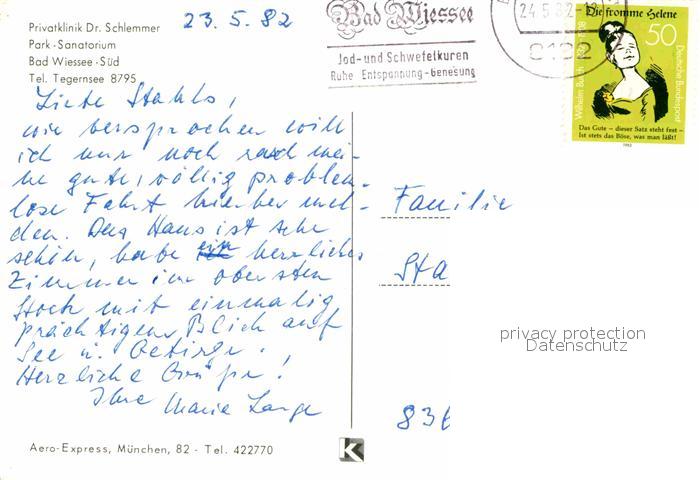 Privatklinik Dr. Schlemmer
Park-Sanatorium
Bad Wiessee-Süd
Tel. Tegernsee 8795
23.5.82
Bad Wiessee
Jod- und Schwefelkuren
Ruhe Entspannung-Genesung
24.5.82
8182
Die fromme Helene
50
Wilhelm Busch
Deutsche Bundespost
Das Gute – dieser Satz steht fest –
Ist stets das Böse, was man läßt!
1982
Liebe Stahls,
wie versprochen will
ich nur noch rasch mei-
ne gute, völlig problem-
lose Fahrt hierher mel-
den. Das Haus ist sehr
schön, habe ein herrliches
Zimmer im obersten
Stock mit einmalig
prächtigem Blick auf
See u. Gebirge.
Herzliche Grüße!
Ihre Marie Lange
Familie
Sta
836
privacy protection
Datenschutz
Aero-Express, München, 82 - Tel. 422770
K